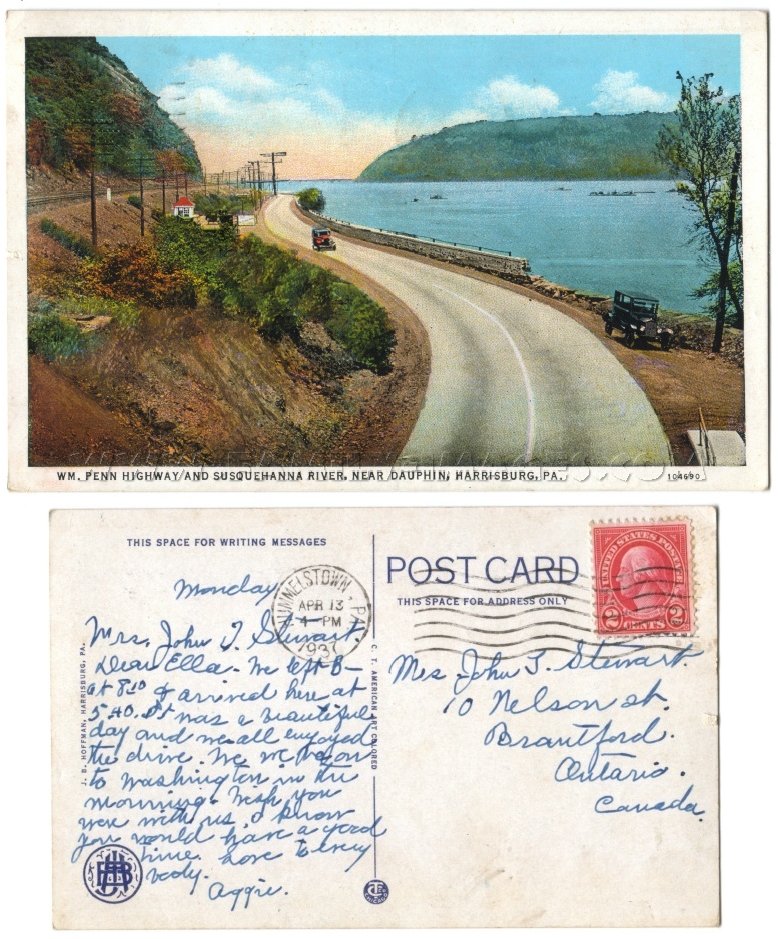 WM. PENN HIGHWAY AND SUSQUEHANNA RIVER, NEAR DAUPHIN, HARRISBURG, PA.
104690
THIS SPACE FOR WRITING MESSAGES
POST CARD
THIS SPACE FOR ADDRESS ONLY
UNITED STATES POSTAGE
2 CENTS 2
HUMMELSTOWN, PA.
APR 13
4-PM
193
Monday
Mrs. John T. Stewart.
Dear Ella. We left B–
at 8.10 & arrived here at
5.40. It was a beautiful
day and we all enjoyed
the drive. We go on
to Washington in the
morning. Wish you
were with us, I know
you would have a good
time. Love to every
body.
Aggie.
Mrs John T. Stewart.
10 Nelson St.
Brantford.
Ontario.
Canada.
J. B. HOFFMAN, HARRISBURG, PA.
C. T. AMERICAN ART COLORED
CHICAGO